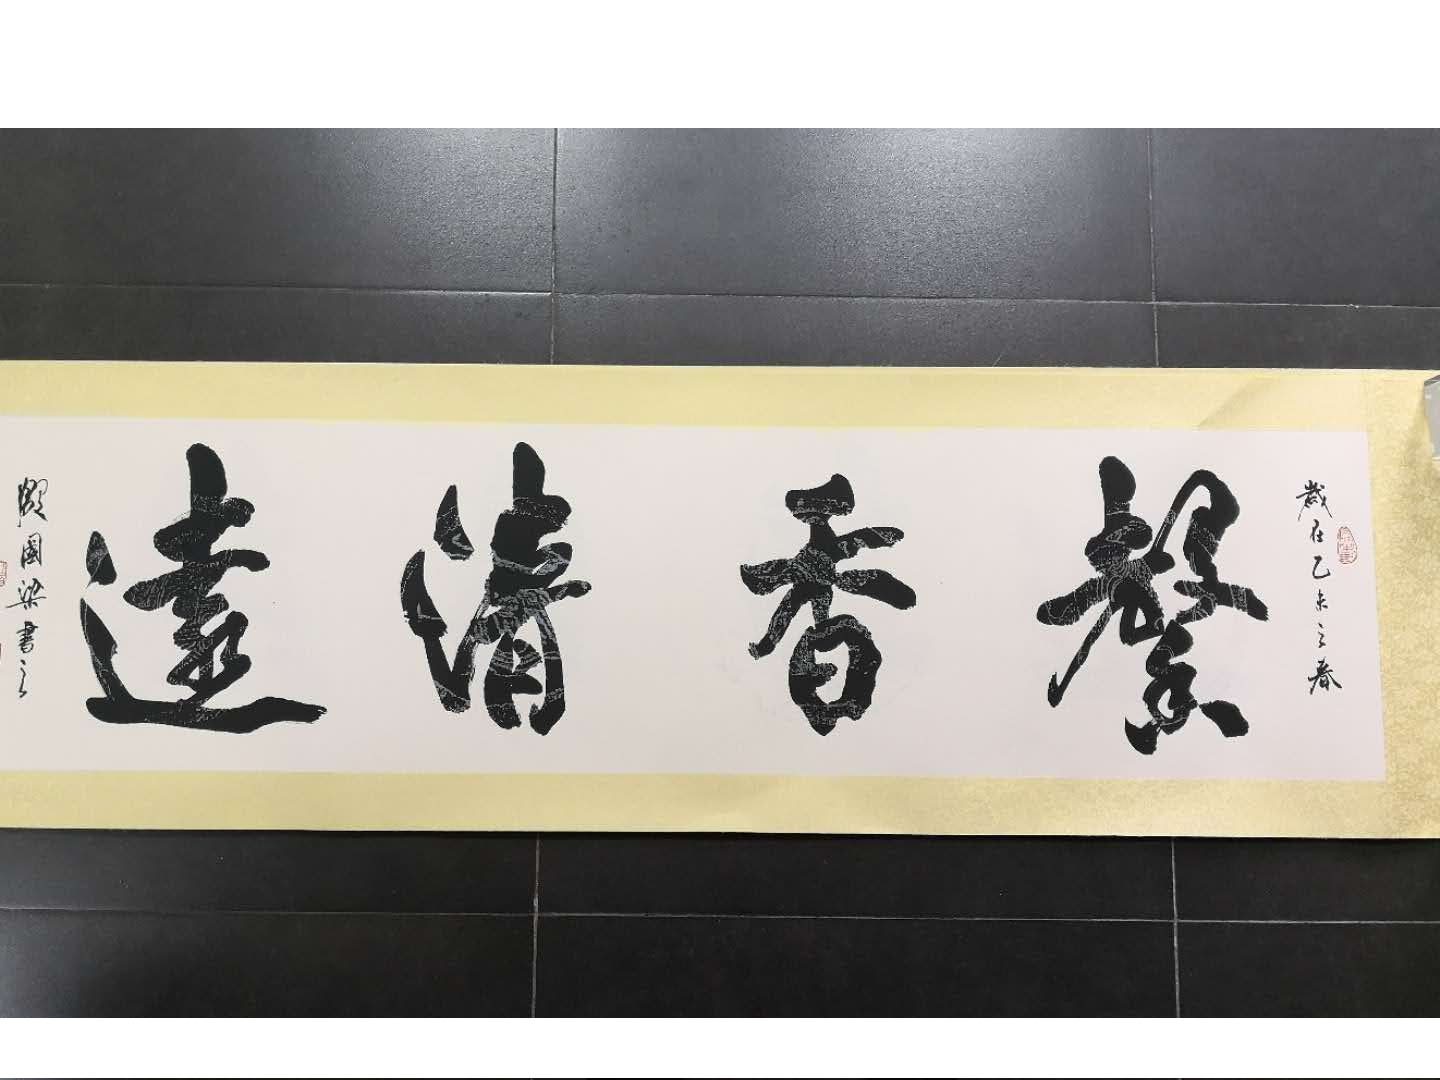 歲在乙未之春
馨香清遠
國梁書之